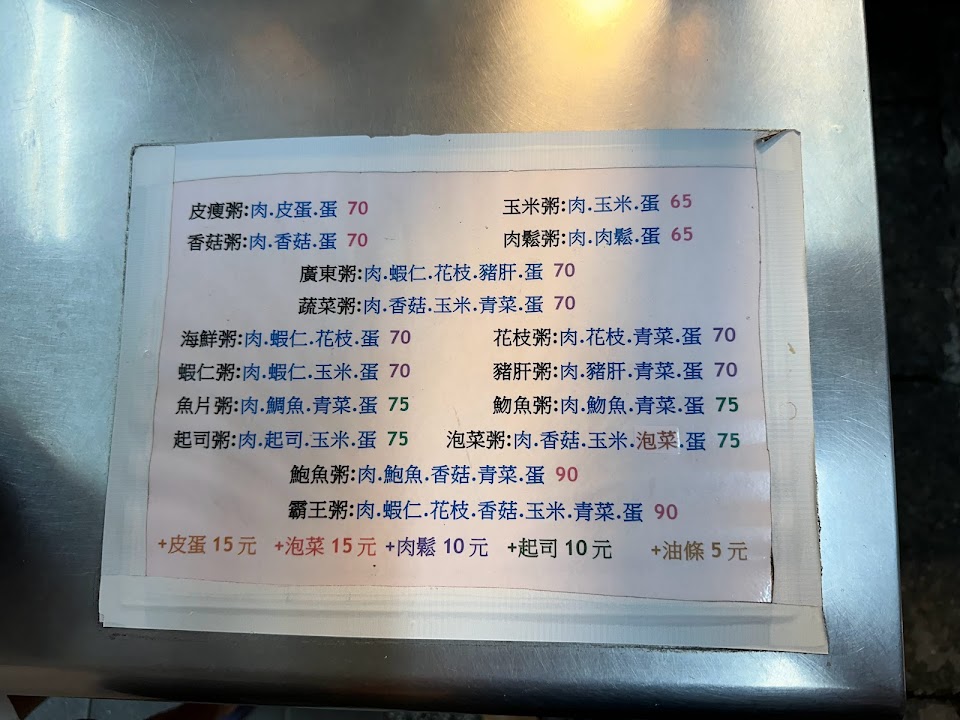 皮瘦粥:肉.皮蛋.蛋 70 玉米粥:肉.玉米.蛋 65
香菇粥:肉.香菇.蛋 70 肉鬆粥:肉.肉鬆.蛋 65
廣東粥:肉.蝦仁.花枝.豬肝.蛋 70
蔬菜粥:肉.香菇.玉米.青菜.蛋 70
海鮮粥:肉.蝦仁.花枝.蛋 70 花枝粥:肉.花枝.青菜.蛋 70
蝦仁粥:肉.蝦仁.玉米.蛋 70 豬肝粥:肉.豬肝.青菜.蛋 70
魚片粥:肉.鯛魚.青菜.蛋 75 魩魚粥:肉.魩魚.青菜.蛋 75
起司粥:肉.起司.玉米.蛋 75 泡菜粥:肉.香菇.玉米.泡菜.蛋 75
鮑魚粥:肉.鮑魚.香菇.青菜.蛋 90
霸王粥:肉.蝦仁.花枝.香菇.玉米.青菜.蛋 90
+皮蛋 15 元 +泡菜 15 元 +肉鬆 10 元 +起司 10 元 +油條 5 元